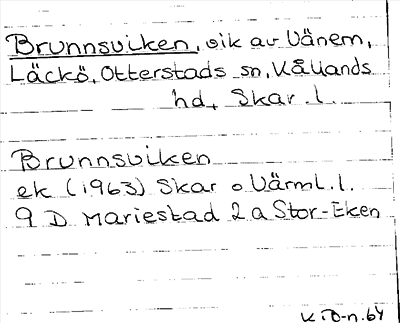 Brunnsviken, vik av Vänern,
Läckö, Otterstads sn, Kållands
hd, Skar. l.
Brunnsviken
ek (1963) Skar o Värml. l.
9 D Mariestad 2 a Stor-Eken
K.D-n.64